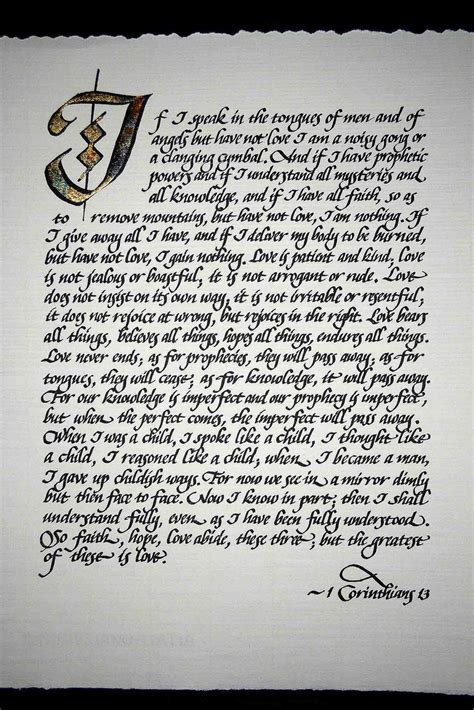 If I speak in the tongues of men and of
angels but have not love I am a noisy gong or
a clanging cymbal. And if I have prophetic
powers and if I understand all mysteries and
all knowledge, and if I have all faith, so as
to remove mountains, but have not love, I am nothing. If
I give away all I have, and if I deliver my body to be burned,
but have not love, I gain nothing. Love is patient and kind, love
is not jealous or boastful, it is not arrogant or rude. Love
does not insist on its own way, it is not irritable or resentful,
it does not rejoice at wrong, but rejoices in the right. Love bears
all things, believes all things, hopes all things, endures all things.
Love never ends; as for prophecies, they will pass away; as for
tongues, they will cease; as for knowledge, it will pass away.
For our knowledge is imperfect and our prophecy is imperfect,
but when the perfect comes, the imperfect will pass away.
When I was a child, I spoke like a child, I thought like
a child, I reasoned like a child, when I became a man,
I gave up childish ways. For now we see in a mirror dimly
but then face to face. Now I know in part; then I shall
understand fully, even as I have been fully understood.
So faith, hope, love abide, these three; but the greatest
of these is love.
~1 Corinthians 13